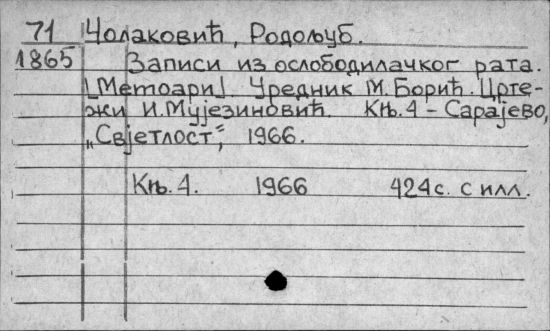 71 Чолаковић, Родољуб.
1865 Записи из ослободилачког рата.
[Метоари]. Уредник М. Борић. Црте-
жи И. Мујезиновић. Књ. 4 – Сарајево,
„Свјетлост“, 1966.
Књ. 4. 1966 424 с. с илл.